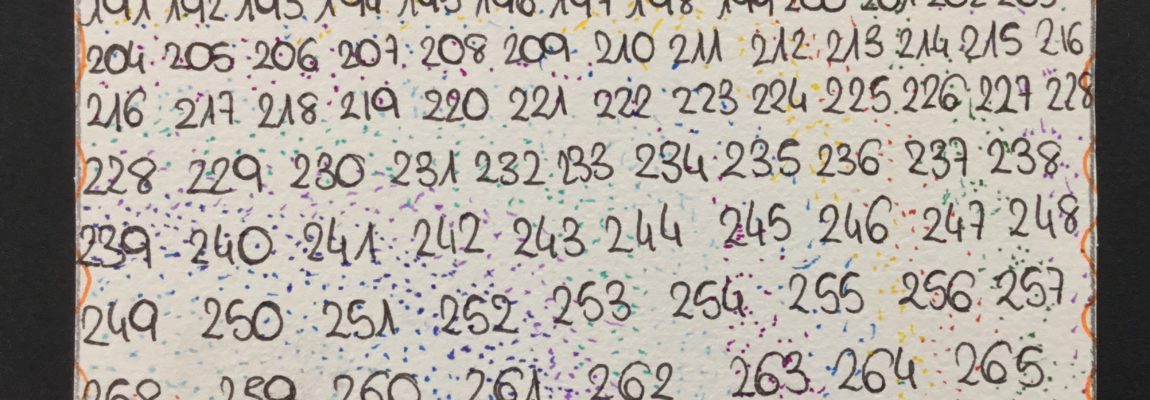 191 192 193 194 195 196 197 198 199 200 201 202 203
204 205 206 207 208 209 210 211 212 213 214 215 216
216 217 218 219 220 221 222 223 224 225 226 227 228
228 229 230 231 232 233 234 235 236 237 238
239 240 241 242 243 244 245 246 247 248
249 250 251 252 253 254 255 256 257
268 259 260 261 262 263 264 265